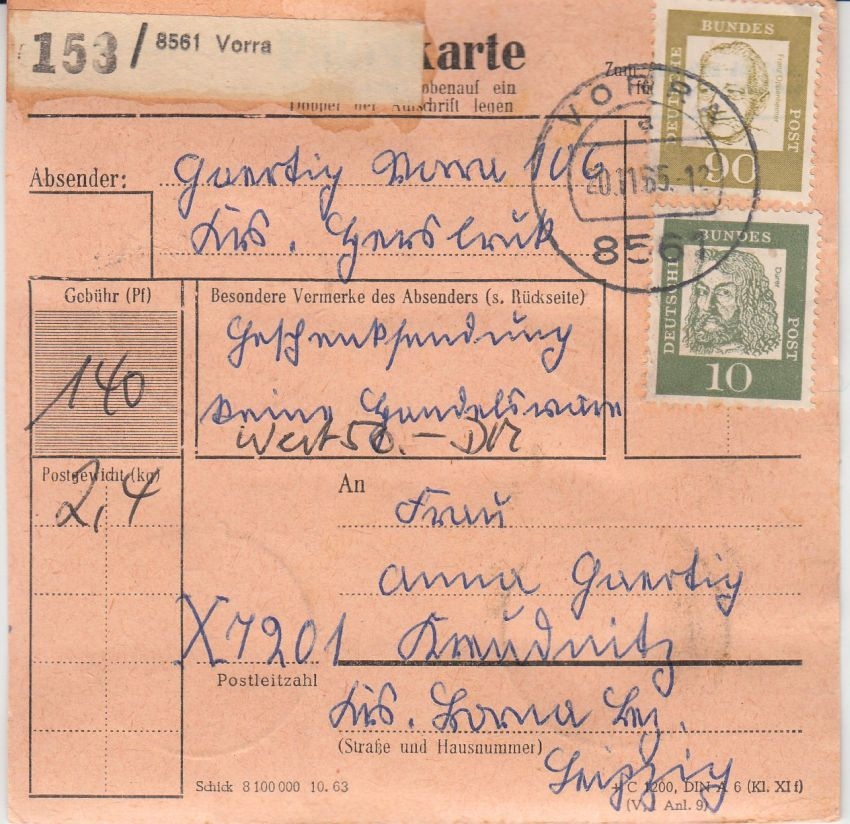 153 / 8561 Vorra
karte
obenauf ein
Doppel der Aufschrift legen
DEUTSCHE BUNDES POST
90
VORRA
a
20.11.65.-12
8561
DEUTSCHE BUNDES POST
Dürer
10
Absender: Gaertig Vorra 106
Krs. Hersbruk
Gebühr (Pf)
140
Besondere Vermerke des Absenders (s. Rückseite)
Geschenksendung
keine Handelsware
Wert 50.- DM
Postgewicht (kg)
2,4
An
Frau
Anna Gaertig
X7201 Kreudnitz
Postleitzahl
Krs. Borna Bez.
(Straße und Hausnummer)
Leipzig
Schick 8 100 000 10. 63
+ C 1200, DIN A 6 (Kl. XI f)
(V, Anl. 9)